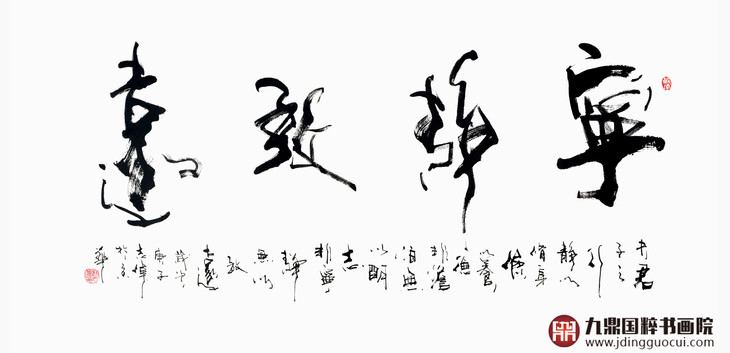 寧靜致遠
夫君
子之
行
静以
修身
儉
以養
德
非澹
泊無
以明
志
非寧
静
無以
致
遠
歲次
庚子
於京
華
九鼎国粹书画院
www.jdingguocui.com